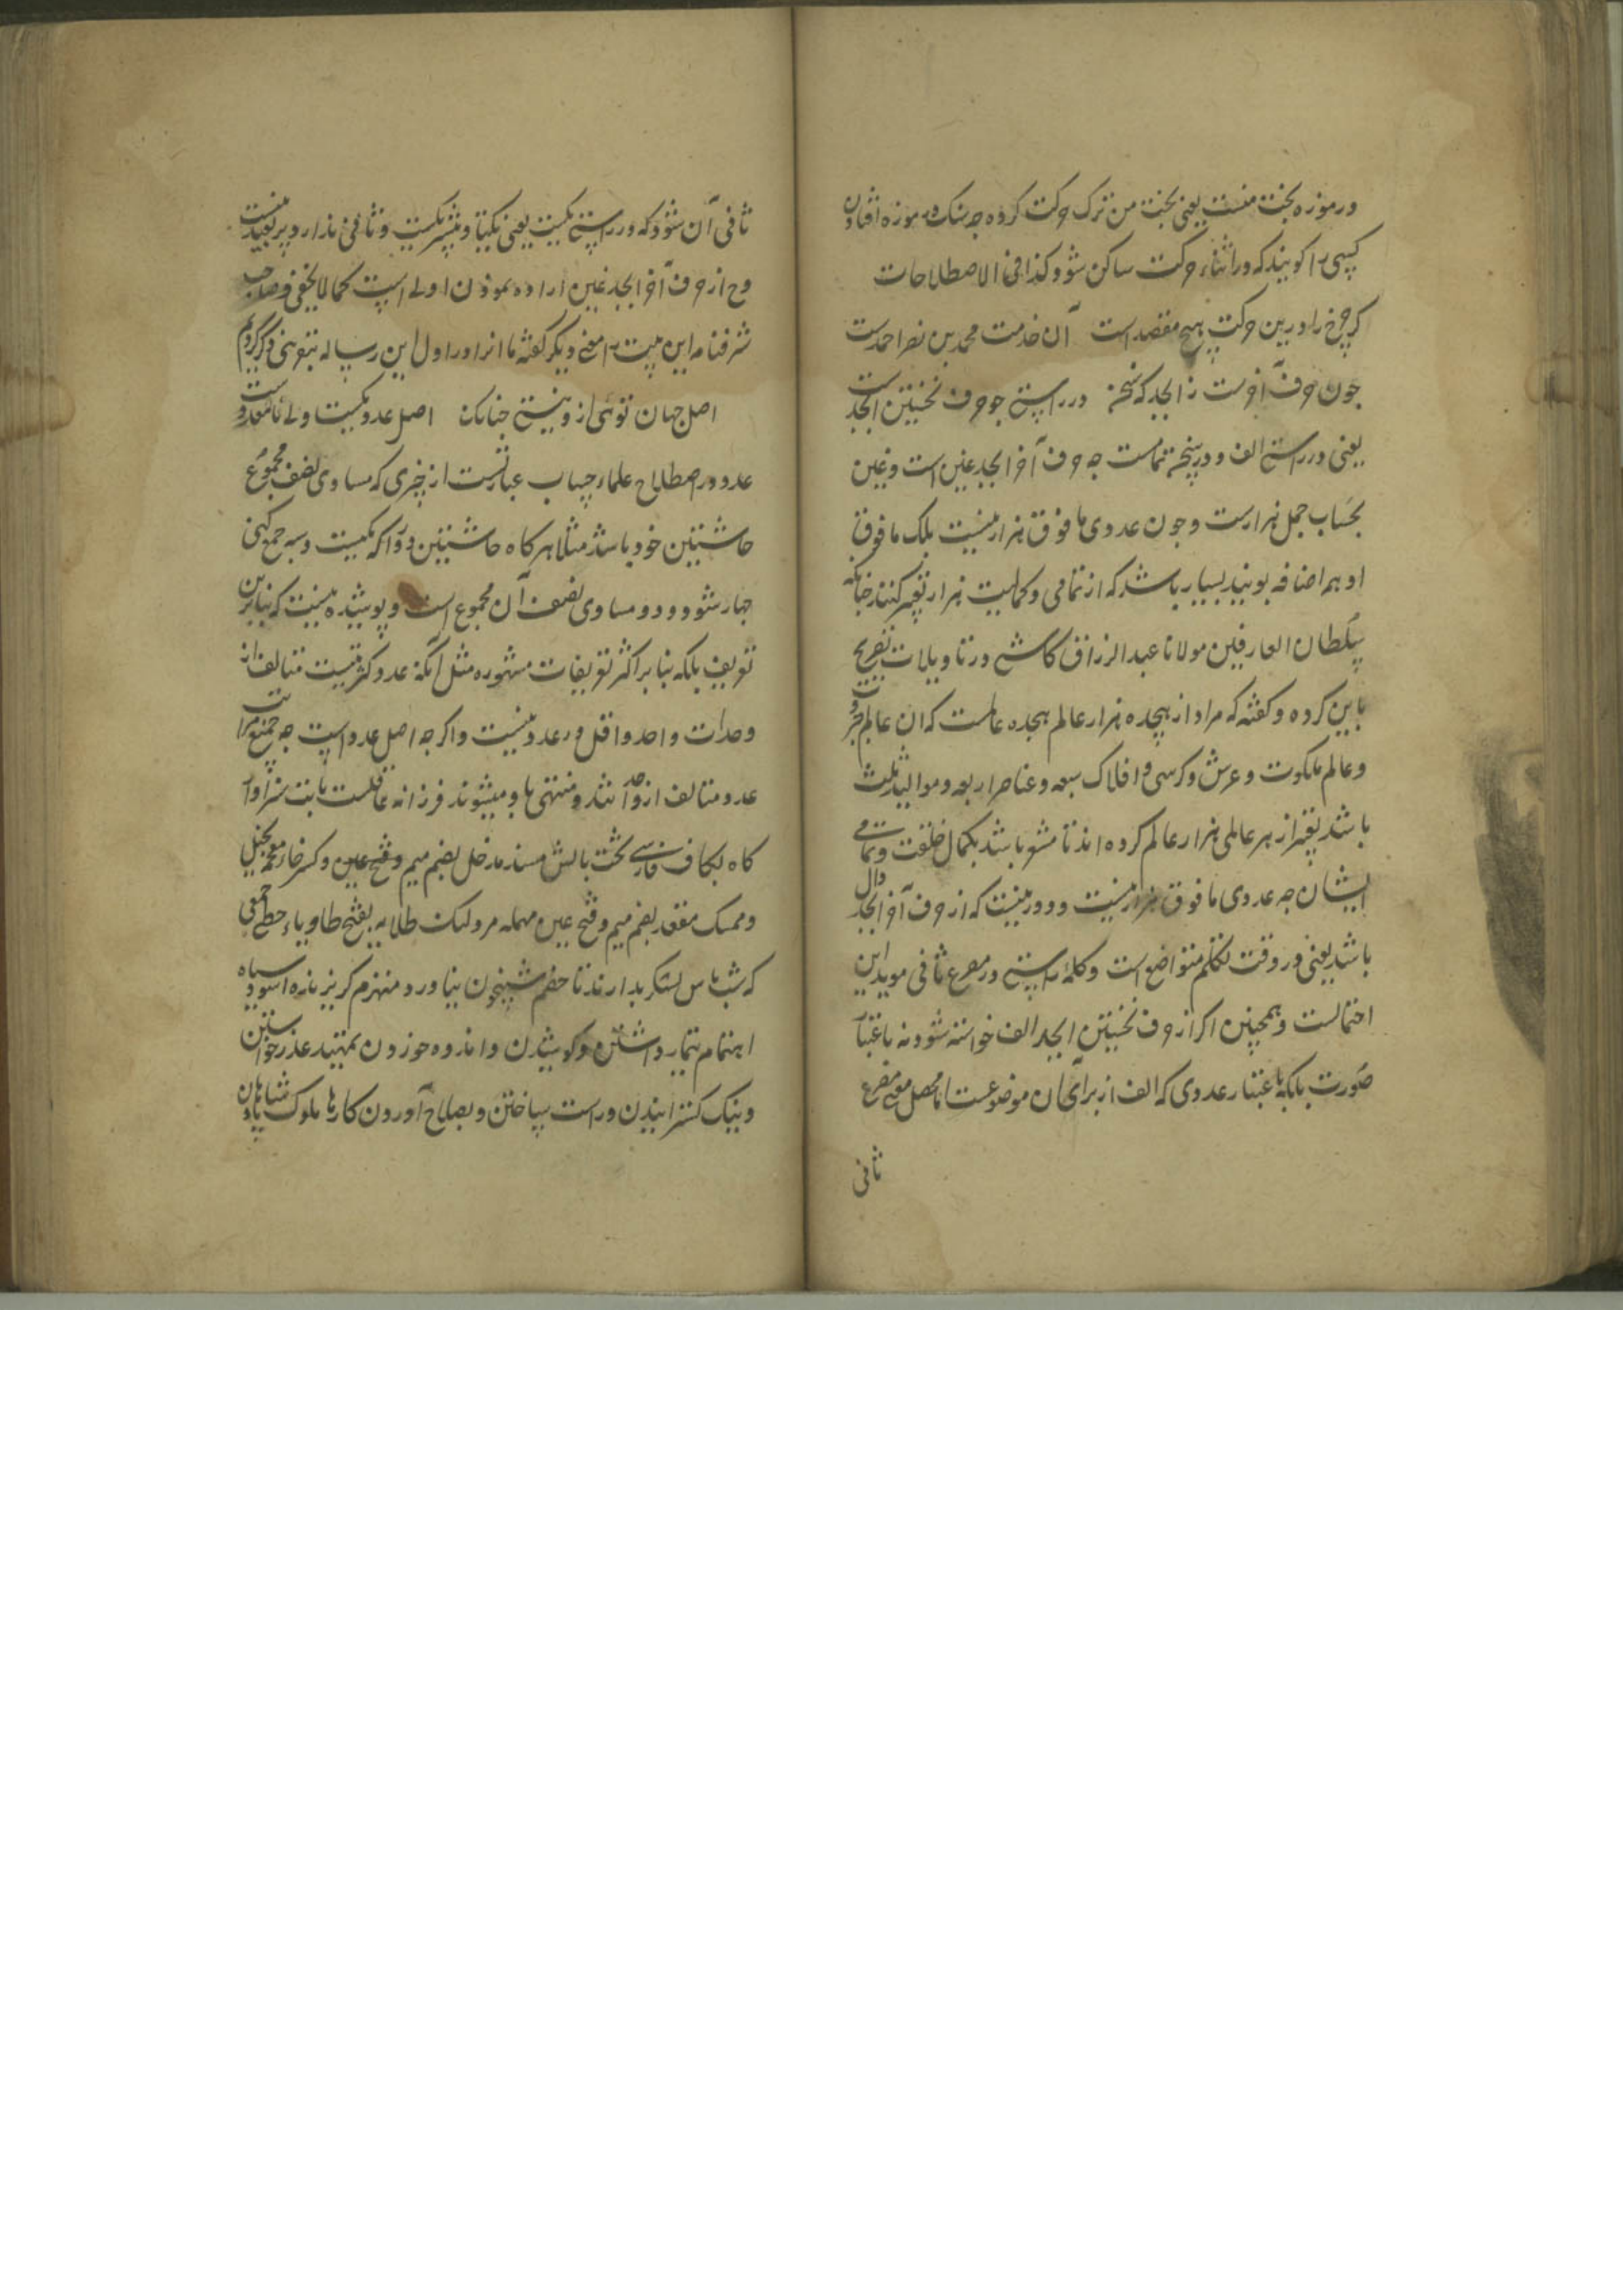 در موزه بخت منست یعنی بخت من ترک حرکت کرده چه سنک در موزه افتادن
کسی را کویند که در اثناء حرکت ساکن شود کذا فی الاصطلاحات
کر چرخ را درین حرکت هیچ مقصد است آن خدمت محمد بن نصر احمدست
چون حرف آخرست ز ابجد که سخن در راستی چو حرف نخستین ابجدست
یعنی در راستی الف و در سخن تمامست چه حرف آخر ابجد غین است و غین
بحساب جمل هزارست و چون عددی ما فوق هزار نیست بلک ما فوق
او بهم اضافه بوبند بسیار باشد که از تمامی و کمالیت هزار تعبیر کنند چنانکه
سلطان العارفین مولانا عبد الرزاق کاشی در تاویلات تصریح
باین کرده و کفته که مراد از هیجده هزار عالم هیجده عالمست که ان عالم جبروت
و عالم ملکوت و عرش و کرسی و افلاک سبعه و عناصر اربعه و موالید ثلث
باشد تعبیر از هر عالمی هزار عالم کرده اند تا مشعر باشد بکمال خلقت و تمامی
ایشان چه عددی ما فوق هزار نیست و دور نیست که از حرف آخر ابجد دال
باشد یعنی در وقت تکلم متواضع است و کلمه راستی در مصرع ثانی موید این
احتمالست و همچنین اکر از حرف نخستین ابجد الف خواسته شود نه باعتبار
صورت بلکه باعتبار عددی که الف از برای ان موضوعست اما محصل معنی مصرع
ثانی
ثانی آن شود که در راستی یکیست یعنی یکتا و بیشتر یکیست و ثانی ندارد پر بعید نیست
و ح از حرف آخر ابجد غین اراده نمودن اولی است کما لا یخفی و صاحب
شرفنامه این بیت را معنی دیکر کفته ما انرا در اول این رساله بتقریبی ذکر کردیم
اصل جهان توئی از و بیشی چنانک اصل عدد یکیست ولی نامعدودست
عدد در اصطلاح علماء حساب عبارتست از چیزی که مساوی نصف مجموع
حاشیتین خود باشد مثلا هر کاه حاشیتین دو را که یکیست و سه جمع کنی
چهار شود و دو مساوی نصف آن مجموع است و پوشیده نیست که بنابرین
تعریف بلکه بنابر اکثر تعریفات مشهوره مثل آنکه عدد کثرتیست متالف از
وحدات واحد داخل در عدد نیست و اکر چه اصل عدد است چه جمیع مراتب
عدد متالف از واحد اند و منتهی باو میشوند فرزانه عاقلست بابت سزاوار
کاه بکاف فارسی تخت بالش مسند مدخل بضم میم و فتح عین و کسر خاء معجمه بخیل
و ممسک مفقار بضم میم و فتح عین مهمله مردلک طلایه بفتح طا و یاء حطی جمعی
که شب پاس لشکر بدارند تا خصم شبیخون نیاورد منهزم کریزنده اسود سیاه
اهتمام تیمار داشتن و کوشیدن و اندوه خوردن تمهید عذر خواستن
و نیک کسترانیدن و راست ساختن و بصلاح آوردن کارها ملوک پادشاهان